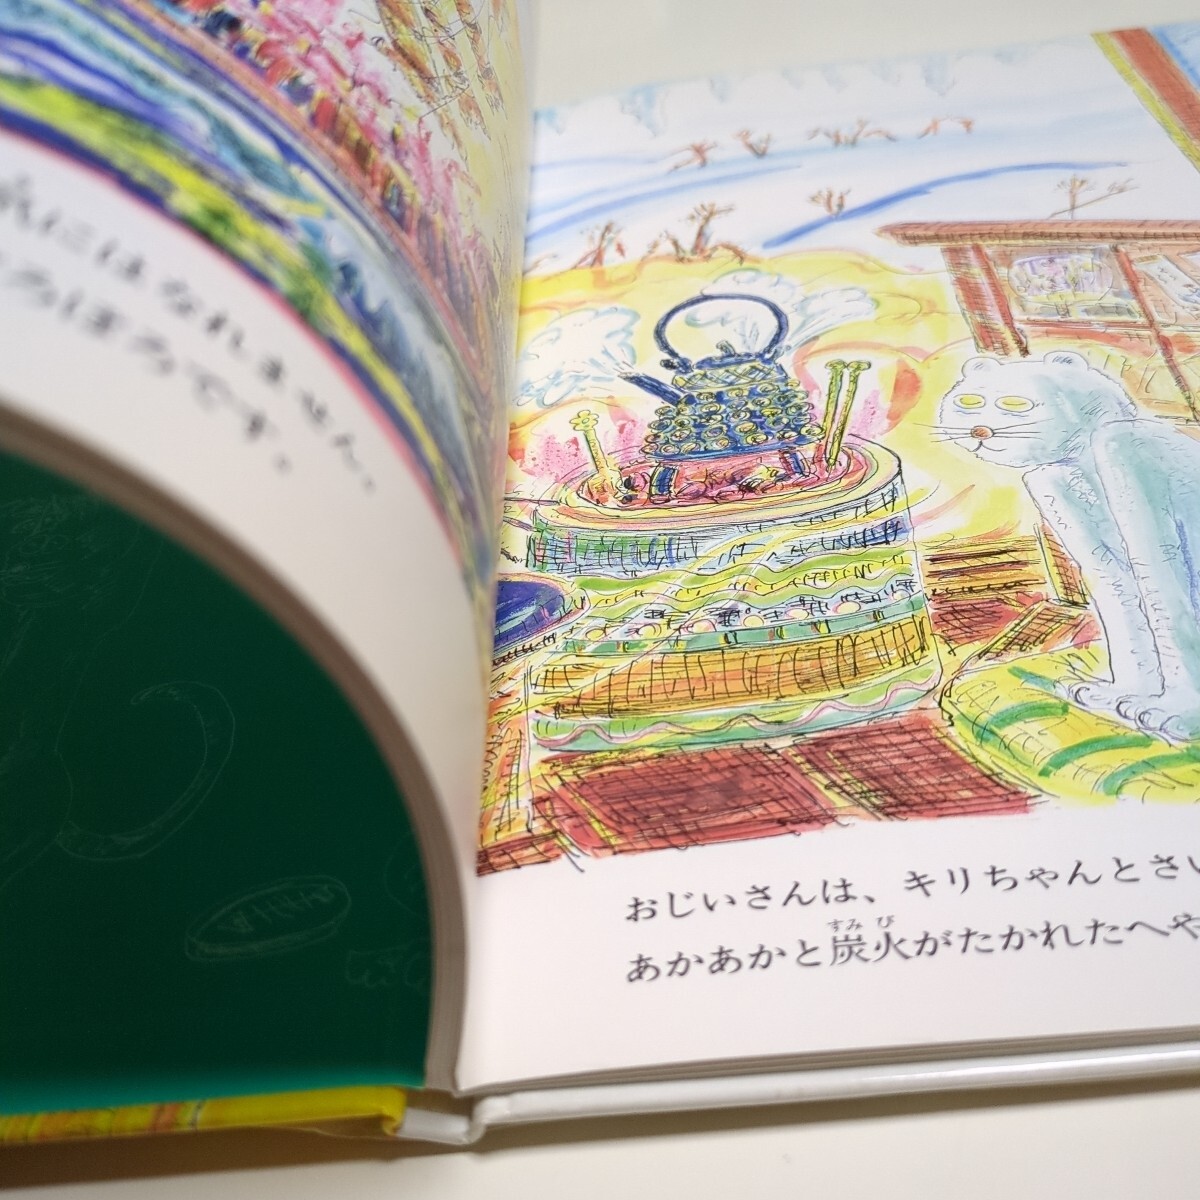 にはなれません。
ろぼろです。
おじいさんは、キリちゃんとさい
あかあかと炭火がたかれたへや
すみび